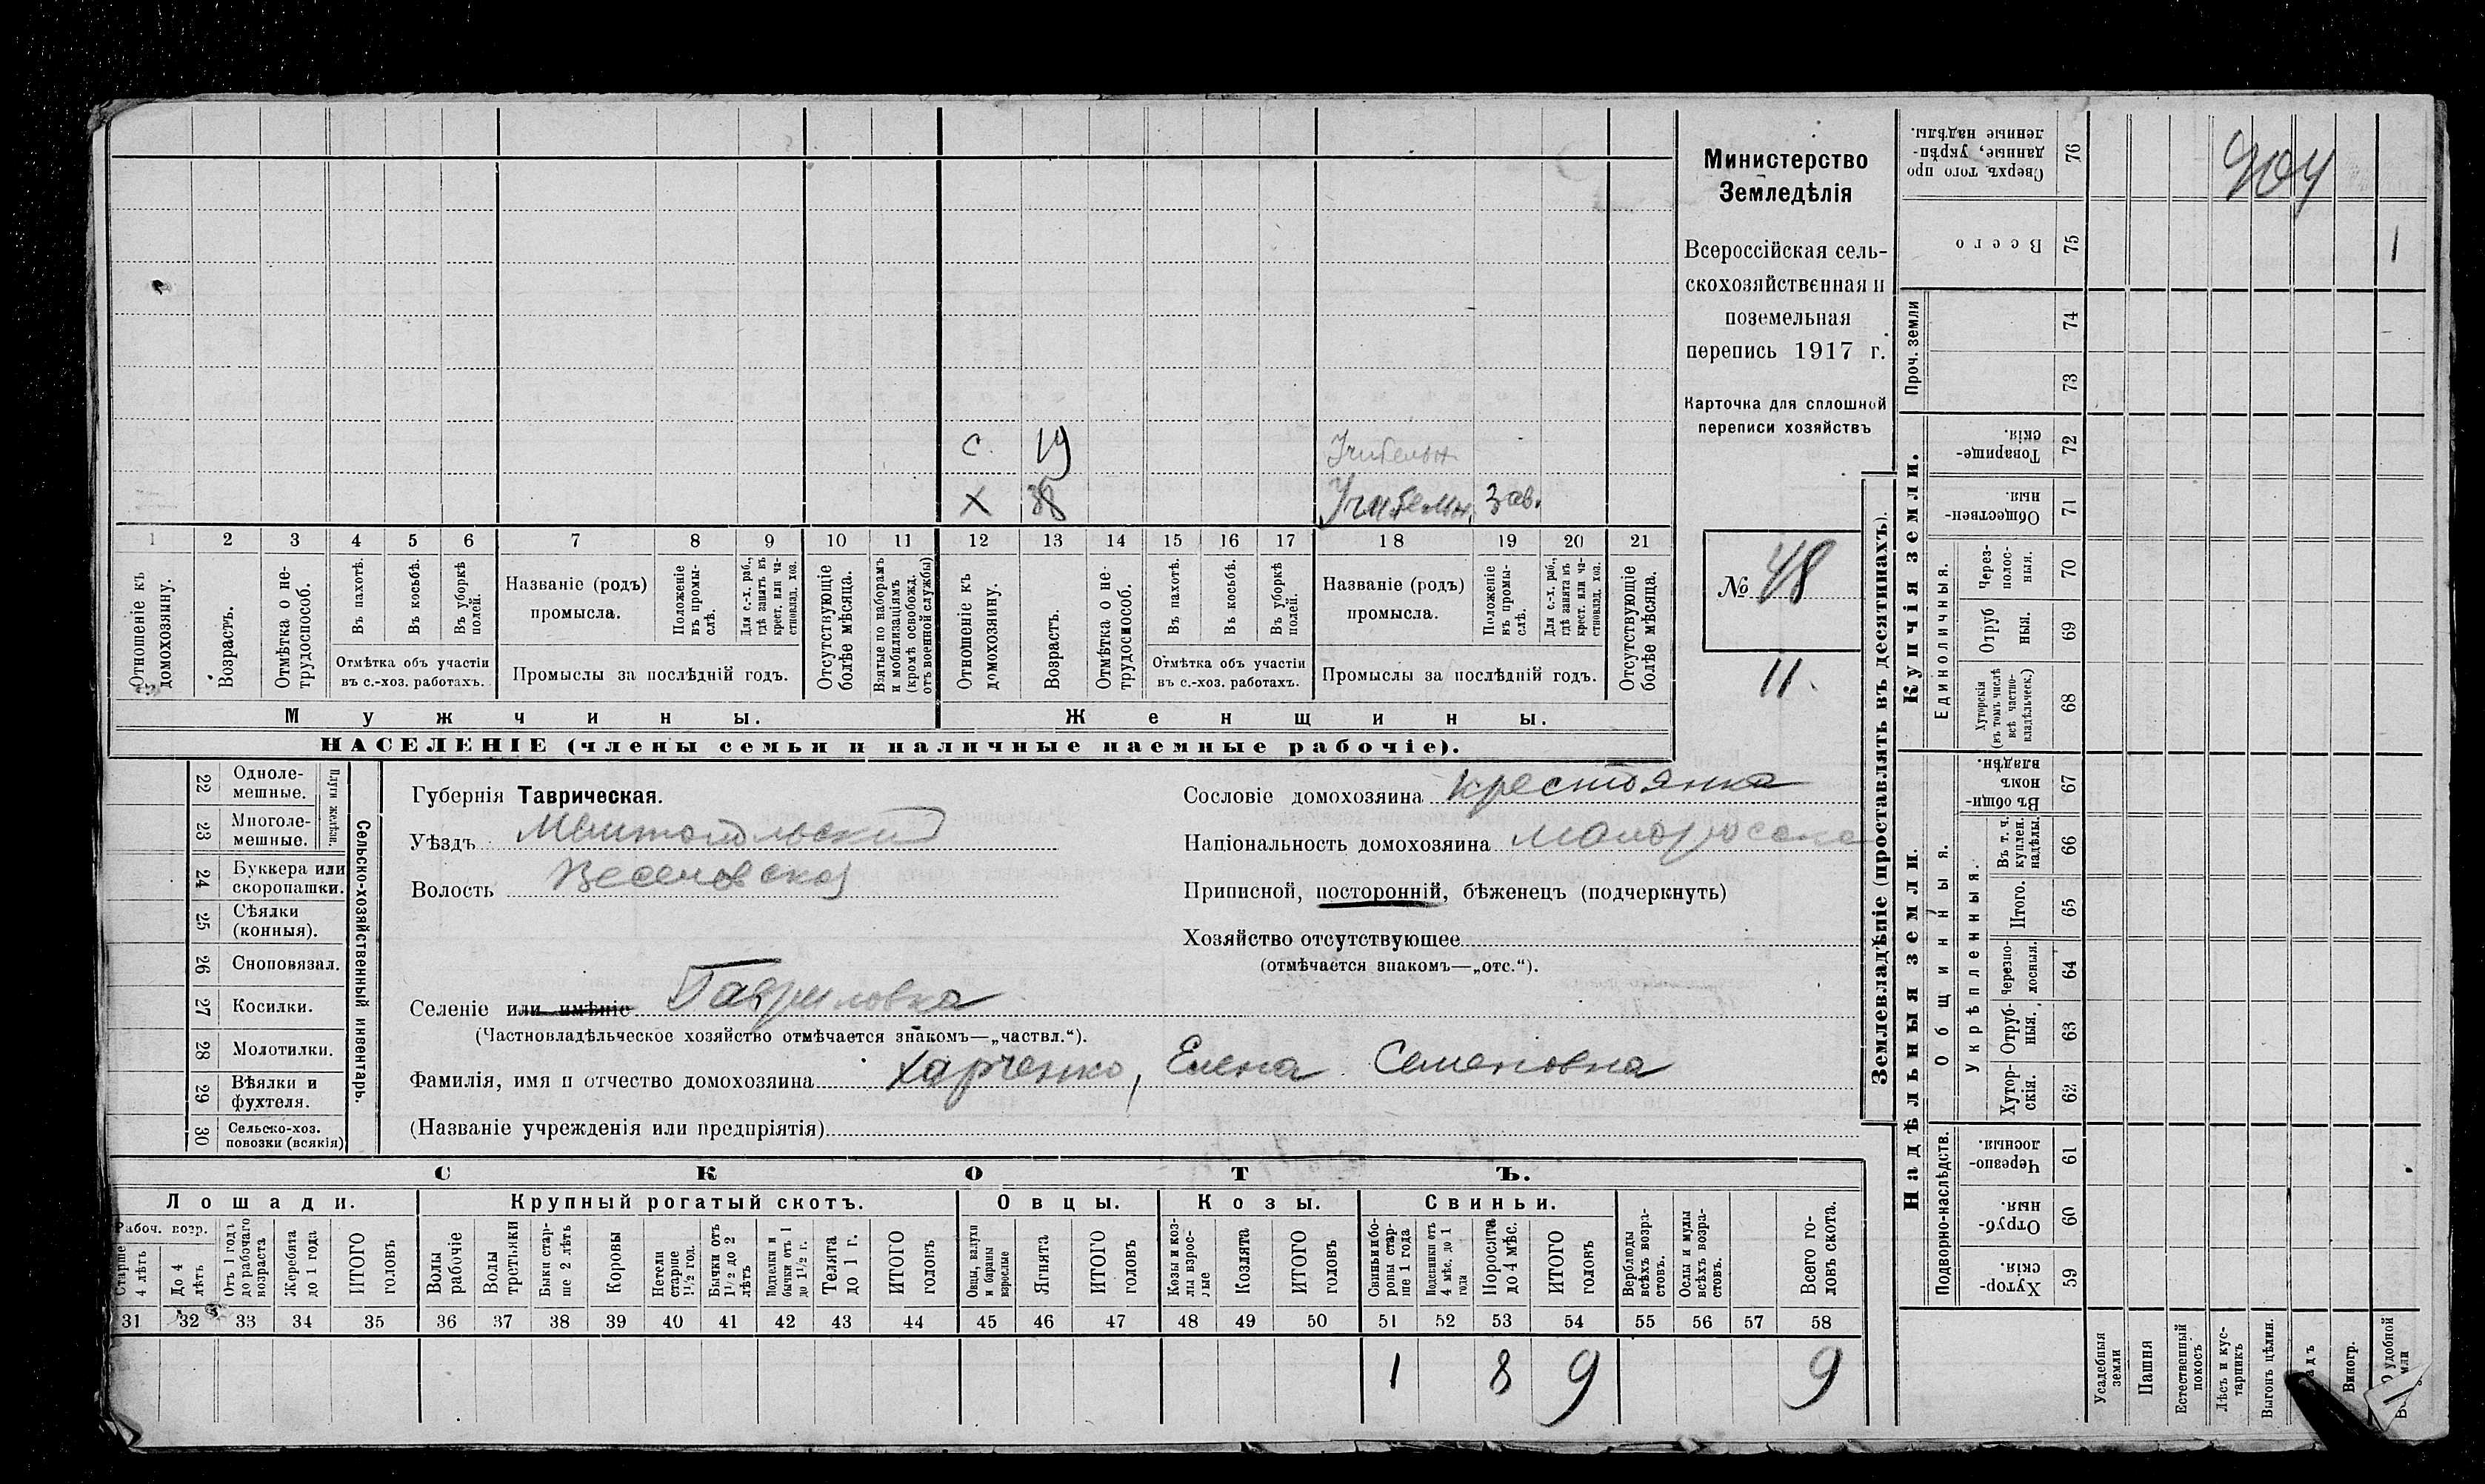 с. 19 Учительн.
X 38 Учительн. Зав.
1 2 3 4 5 6 7 8 9 10 11 12 13 14 15 16 17 18 19 20 21
Отношеніе къ домохозяину.
Возрастъ.
Отмѣтка о не-
трудоспособ.
Въ пахотѣ.
Въ косьбѣ.
Въ уборкѣ
полей.
Отмѣтка объ участіи
въ с.-хоз. работахъ.
Названіе (родъ)
промысла.
Положеніе
въ промы-
слѣ.
Для с.-х. раб.,
гдѣ занятъ въ
крест. или ча-
стновлад. хоз.
Промыслы за послѣдній годъ.
Отсутствующіе
болѣе мѣсяца.
Взятые по наборамъ
и мобилизаціямъ
(кромѣ освобожд.
отъ военной службы)
Отношеніе къ
домохозяину.
Возрастъ.
Отмѣтка о не-
трудоспособ.
Въ пахотѣ.
Въ косьбѣ.
Въ уборкѣ
полей.
Отмѣтка объ участіи
въ с.-хоз. работахъ.
Названіе (родъ)
промысла.
Положеніе
въ промы-
слѣ.
Для с.-х. раб.,
гдѣ занятъ въ
крест. или ча-
стновлад. хоз.
Промыслы за послѣдній годъ.
Отсутствующіе
болѣе мѣсяца.
Мужчины.
Женщины.
НАСЕЛЕНІЕ (члены семьи и наличные наемные рабочіе).
Министерство
Земледѣлія
Всероссійская сель-
скохозяйственная и
поземельная
перепись 1917 г.
Карточка для сплошной
переписи хозяйствъ
№ 48
11.
22 Одноле-
мешные.
23 Многоле-
мешные.
Плуги желѣзн.
24 Буккера или
скоропашки.
25 Сѣялки
(конныя).
26 Сноповязал.
27 Косилки.
28 Молотилки.
29 Вѣялки и
фухтеля.
30 Сельско-хоз.
повозки (всякія)
Сельско-хозяйственный инвентарь.
Губернія Таврическая.
Уѣздъ Мелитопольский
Волость Веселовская
Селеніе или имѣніе Гавриловка
(Частновладѣльческое хозяйство отмѣчается знакомъ—„частвл.“).
Фамилія, имя и отчество домохозяина Харченко, Елена Семеновна
(Названіе учрежденія или предпріятія)
Сословіе домохозяина крестьянка
Національность домохозяина малоросска
Приписной, посторонній, бѣженецъ (подчеркнуть)
Хозяйство отсутствующее
(отмѣчается знакомъ—„отс.“).
СКОТЪ.
Лошади.
Крупный рогатый скотъ.
Овцы.
Козы.
Свиньи.
Рабоч. возр.
Старше
4 лѣтъ
До 4
лѣтъ
Отъ 1 года
до рабочаго
возраста
Жеребята
до 1 года
ИТОГО
головъ
Волы
рабочіе
Волы
третьяки
Быки стар-
ше 2 лѣтъ
Коровы
Нетели
старше
1½ год.
Бычки отъ
1½ до 2
лѣтъ
Подтелки и
бычки отъ 1
до 1½ г.
Телята
до 1 г.
ИТОГО
головъ
Овцы, валухи
и бараны
взрослые
Ягнята
ИТОГО
головъ
Козы и коз-
лы взрос-
лые
Козлята
ИТОГО
головъ
Свиньи и бо-
ровы стар-
ше 1 года
Подсвинки отъ
4 мѣс. до 1
года
Поросята
до 4 мѣс.
ИТОГО
головъ
Верблюды
всѣхъ возра-
стовъ.
Ослы и мулы
всѣхъ возра-
стовъ.
Всего го-
ловъ скота.
31 32 33 34 35 36 37 38 39 40 41 42 43 44 45 46 47 48 49 50 51 52 53 54 55 56 57 58
1 8 9 9
Землевладѣніе (проставлять въ десятинахъ).
Купчія земли.
Надѣльныя земли.
Проч. земли
Единоличныя.
Общинныя.
Укрѣпленныя.
Подворно-наслѣдств.
Сверхъ того про
данные, укрѣп-
ленные надѣлы. 76
904
Всего 75
1
74
73
Товарище-
скія. 72
Обществен-
ныя. 71
Через-
полос-
ныя. 70
Отруб
ныя. 69
Хуторскія
(въ томъ числѣ
всѣ частно-
владѣльческ.) 68
Въ общин-
номъ
владѣн. 67
Въ т. ч.
куплен.
надѣлы. 66
Итого. 65
Черезпо-
лосныя. 64
Отруб-
ныя. 63
Хутор-
скія. 62
Черезпо-
лосныя. 61
Отруб-
ныя. 60
Хутор-
скія. 59
Усадебныя
земли
Пашня
Естественный
покосъ
Лѣсъ и кус-
тарникъ
Выгонъ цѣлин.
Виногр.
удобной